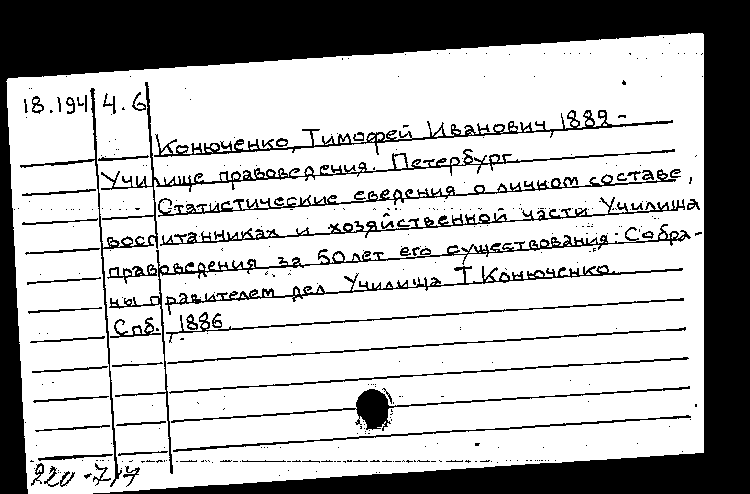 18.194 4.6
Конюченко, Тимофей Иванович, 1882-
Училище правоведения. Петербург.
Статистические сведения о личном составе,
воспитанниках и хозяйственной части Училища
правоведения за 50 лет его существования: Собра-
ны правителем дел Училища Т. Конюченко.
Спб., 1886.
220-7/7